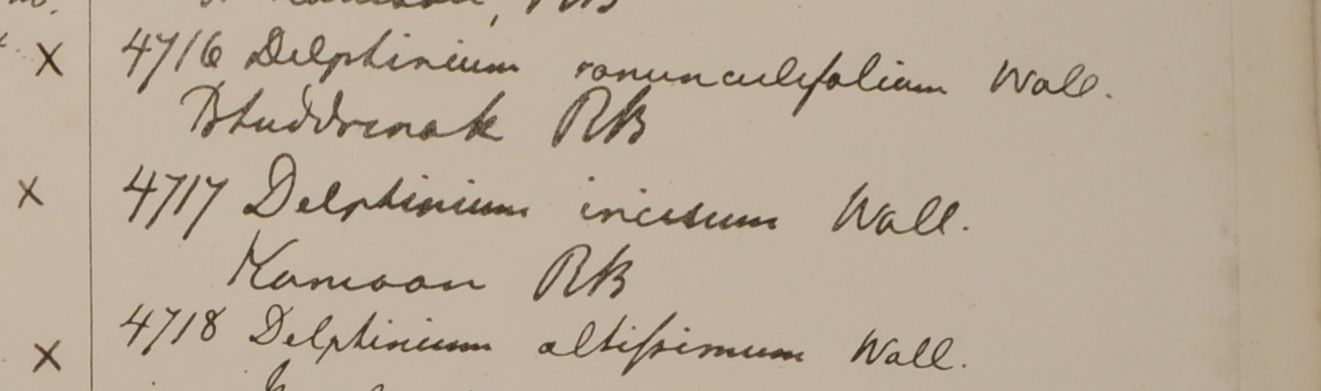 x 4716 Delphinium ranunculifolium Wall.
Bhuddrenak RB
x 4717 Delphinium incisum Wall.
Kamaon RB
x 4718 Delphinium altissimum Wall.